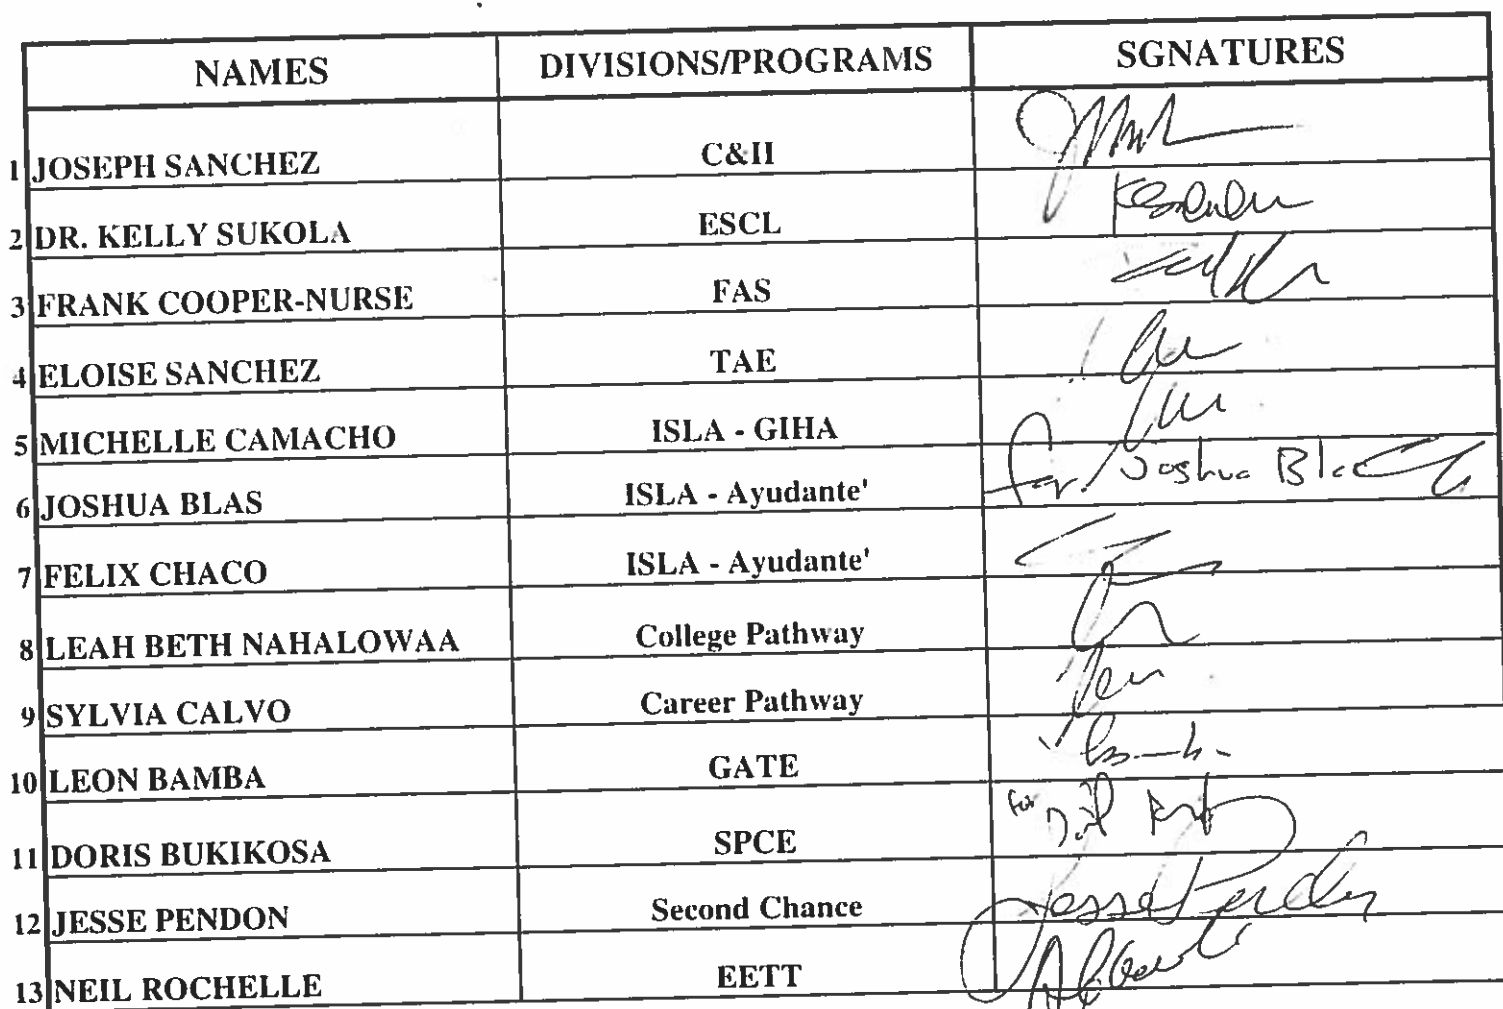 NAMES DIVISIONS/PROGRAMS SGNATURES
1 JOSEPH SANCHEZ C&II
2 DR. KELLY SUKOLA ESCL
3 FRANK COOPER-NURSE FAS
4 ELOISE SANCHEZ TAE
5 MICHELLE CAMACHO ISLA - GIHA
6 JOSHUA BLAS ISLA - Ayudante' for Joshua
7 FELIX CHACO ISLA - Ayudante'
8 LEAH BETH NAHALOWAA College Pathway
9 SYLVIA CALVO Career Pathway
10 LEON BAMBA GATE
11 DORIS BUKIKOSA SPCE for
12 JESSE PENDON Second Chance Jesse Pendon
13 NEIL ROCHELLE EETT